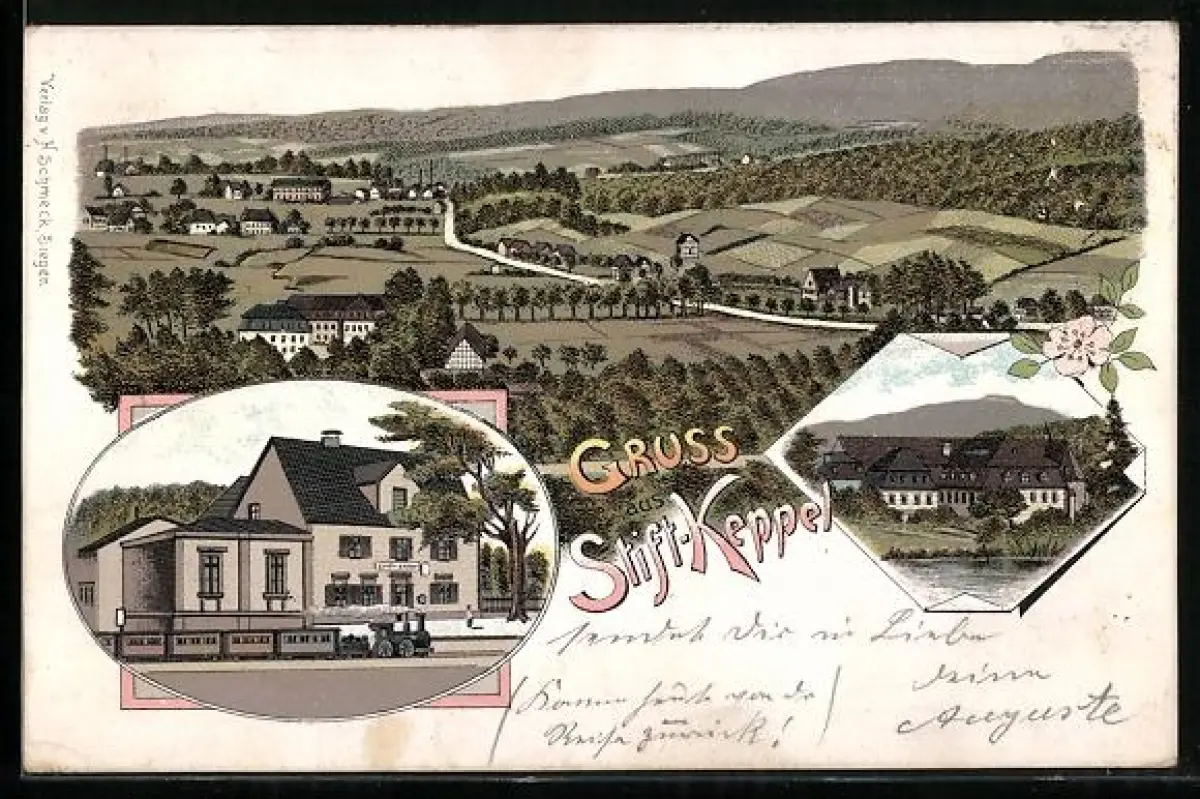 Verlag v. H. Schmeck, Siegen.
GRUSS
aus
Stift-Keppel
sendet Dir in Liebe
deine
Auguste
(Kamen heute von der
Reise zurück!)